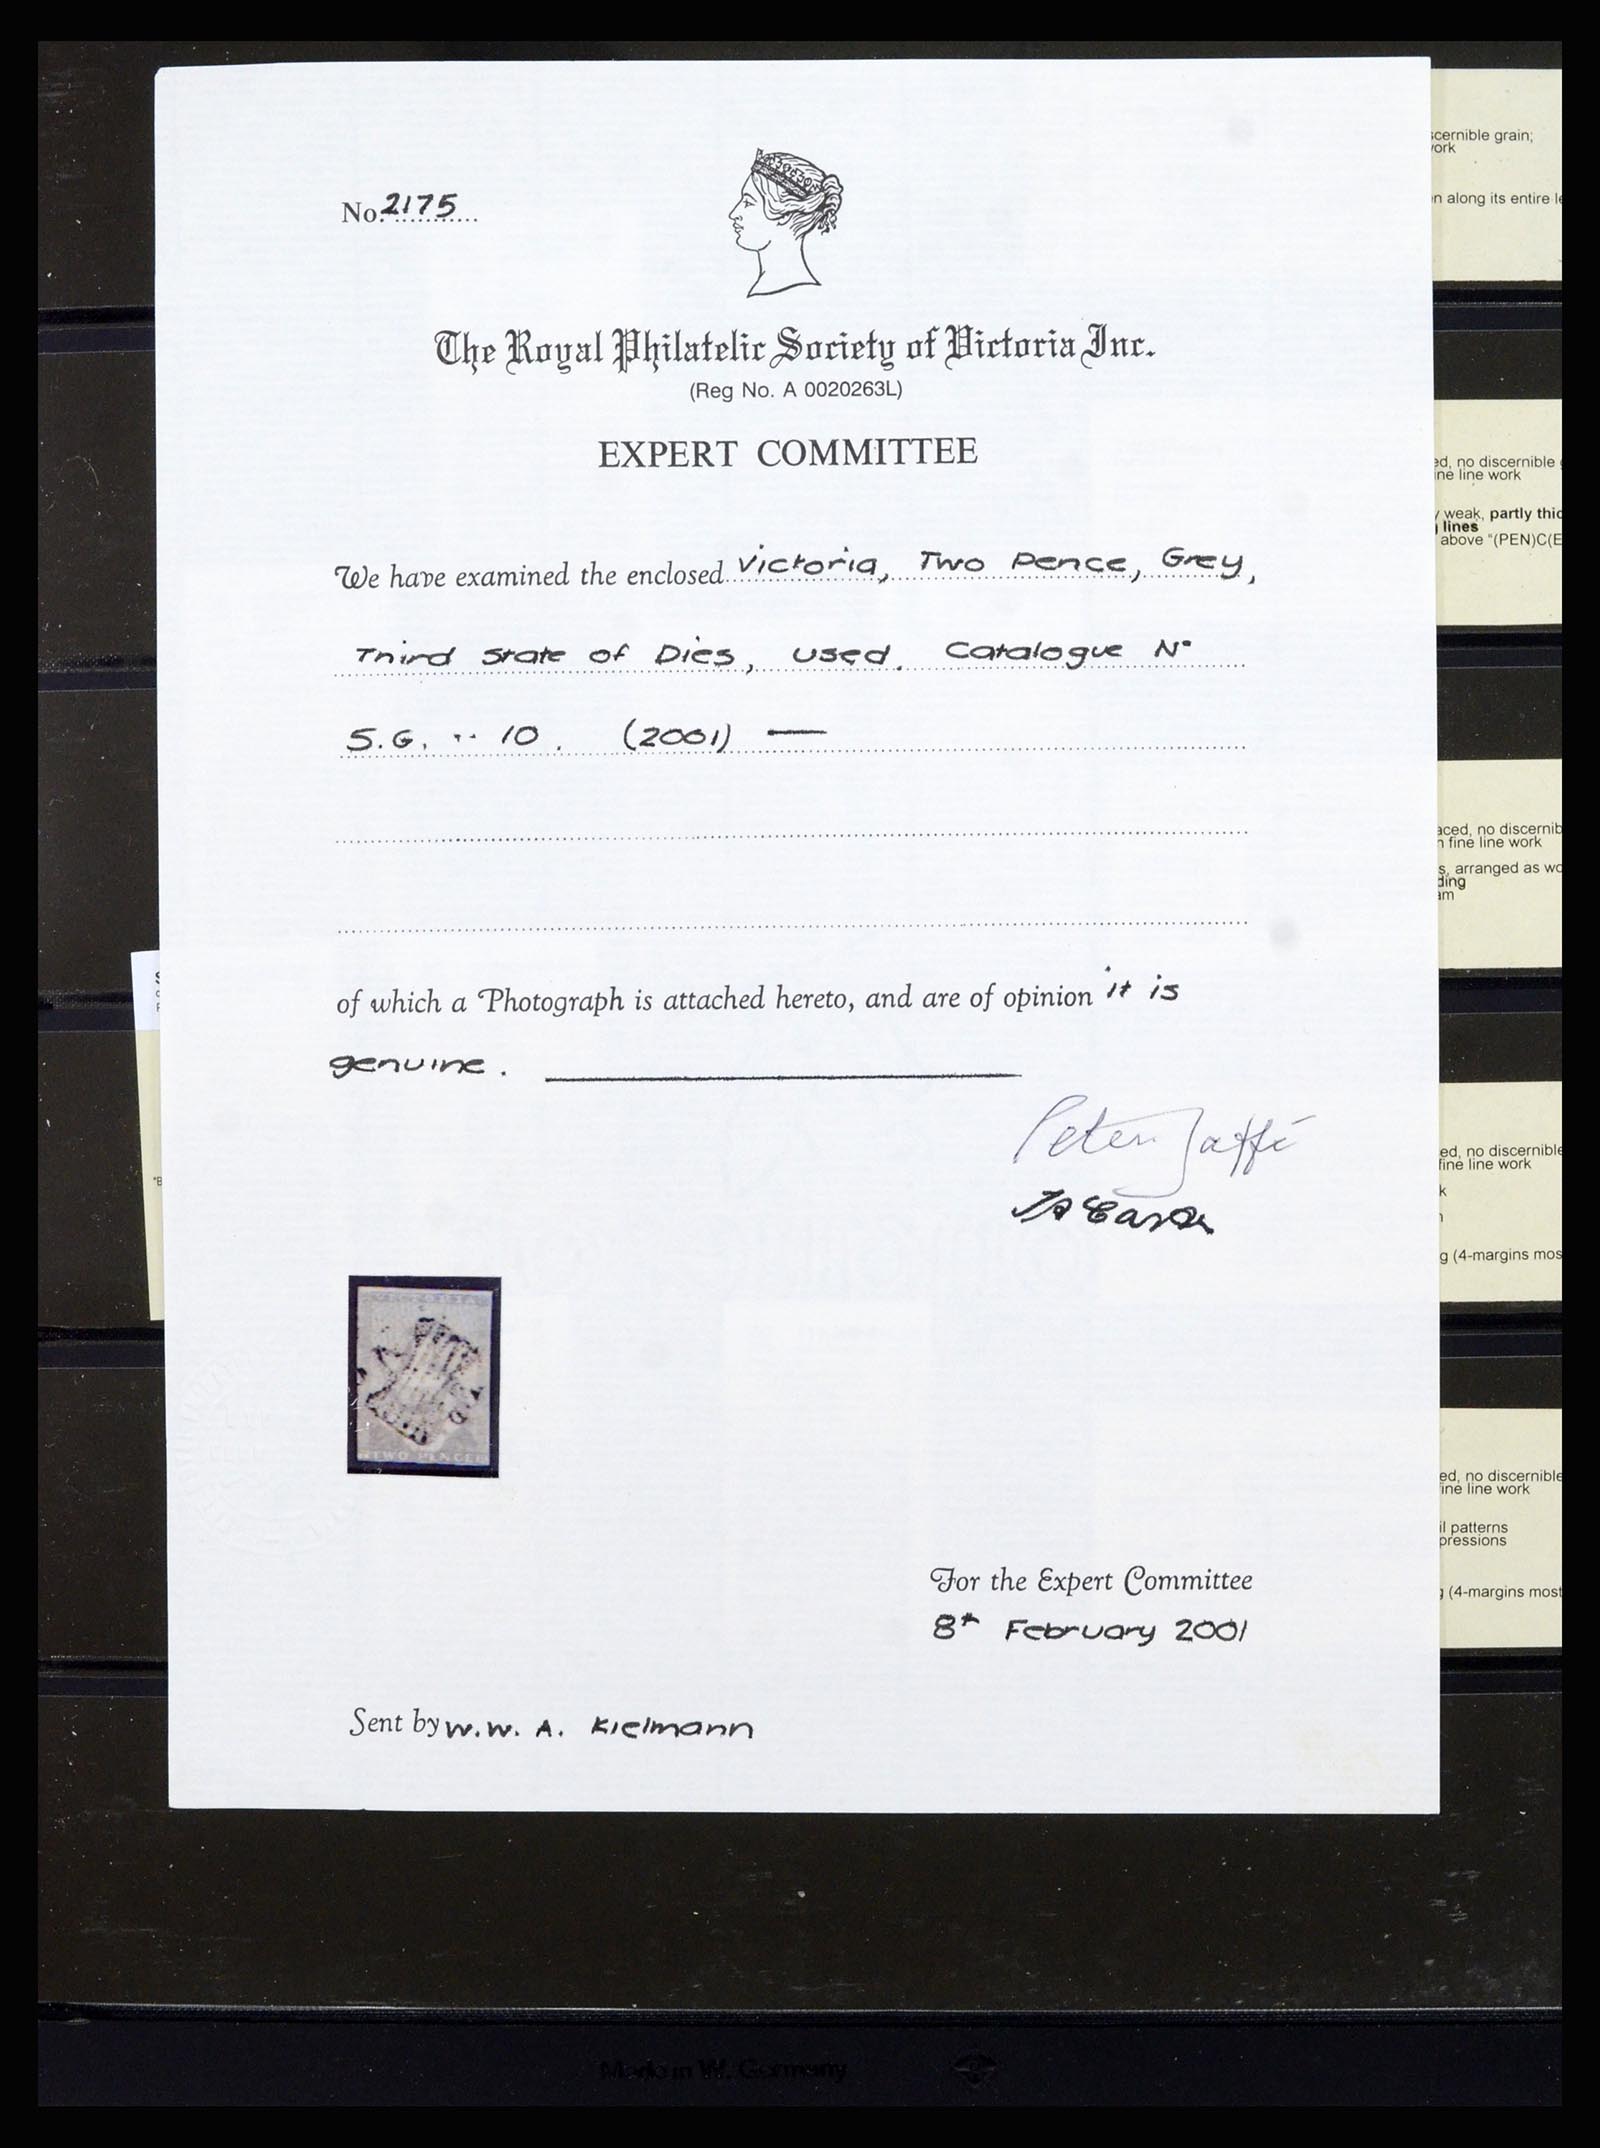 No. 2175
The Royal Philatelic Society of Victoria Inc.
(Reg No. A 0020263L)
EXPERT COMMITTEE
We have examined the enclosed Victoria, Two Pence, Grey,
Third State of Dies, used. Catalogue No
S.G. ·· 10. (2001) —
of which a Photograph is attached hereto, and are of opinion it is
genuine.
Peter Jaffé
VICTORIA
TWO PENCE
For the Expert Committee
8th February 2001
Sent by W.W. A. Kielmann
cernible grain;
ork
n along its entire
ed, no discernible
ne line work
weak, partly thic
lines
above "(PEN)C(E
aced, no discernib
fine line work
s, arranged as wo
ding
am
ed, no discernible
fine line work
k
g (4-margins mos
ed, no discernible
ine line work
il patterns
pressions
(4-margins most
"B
Made in W. Germany